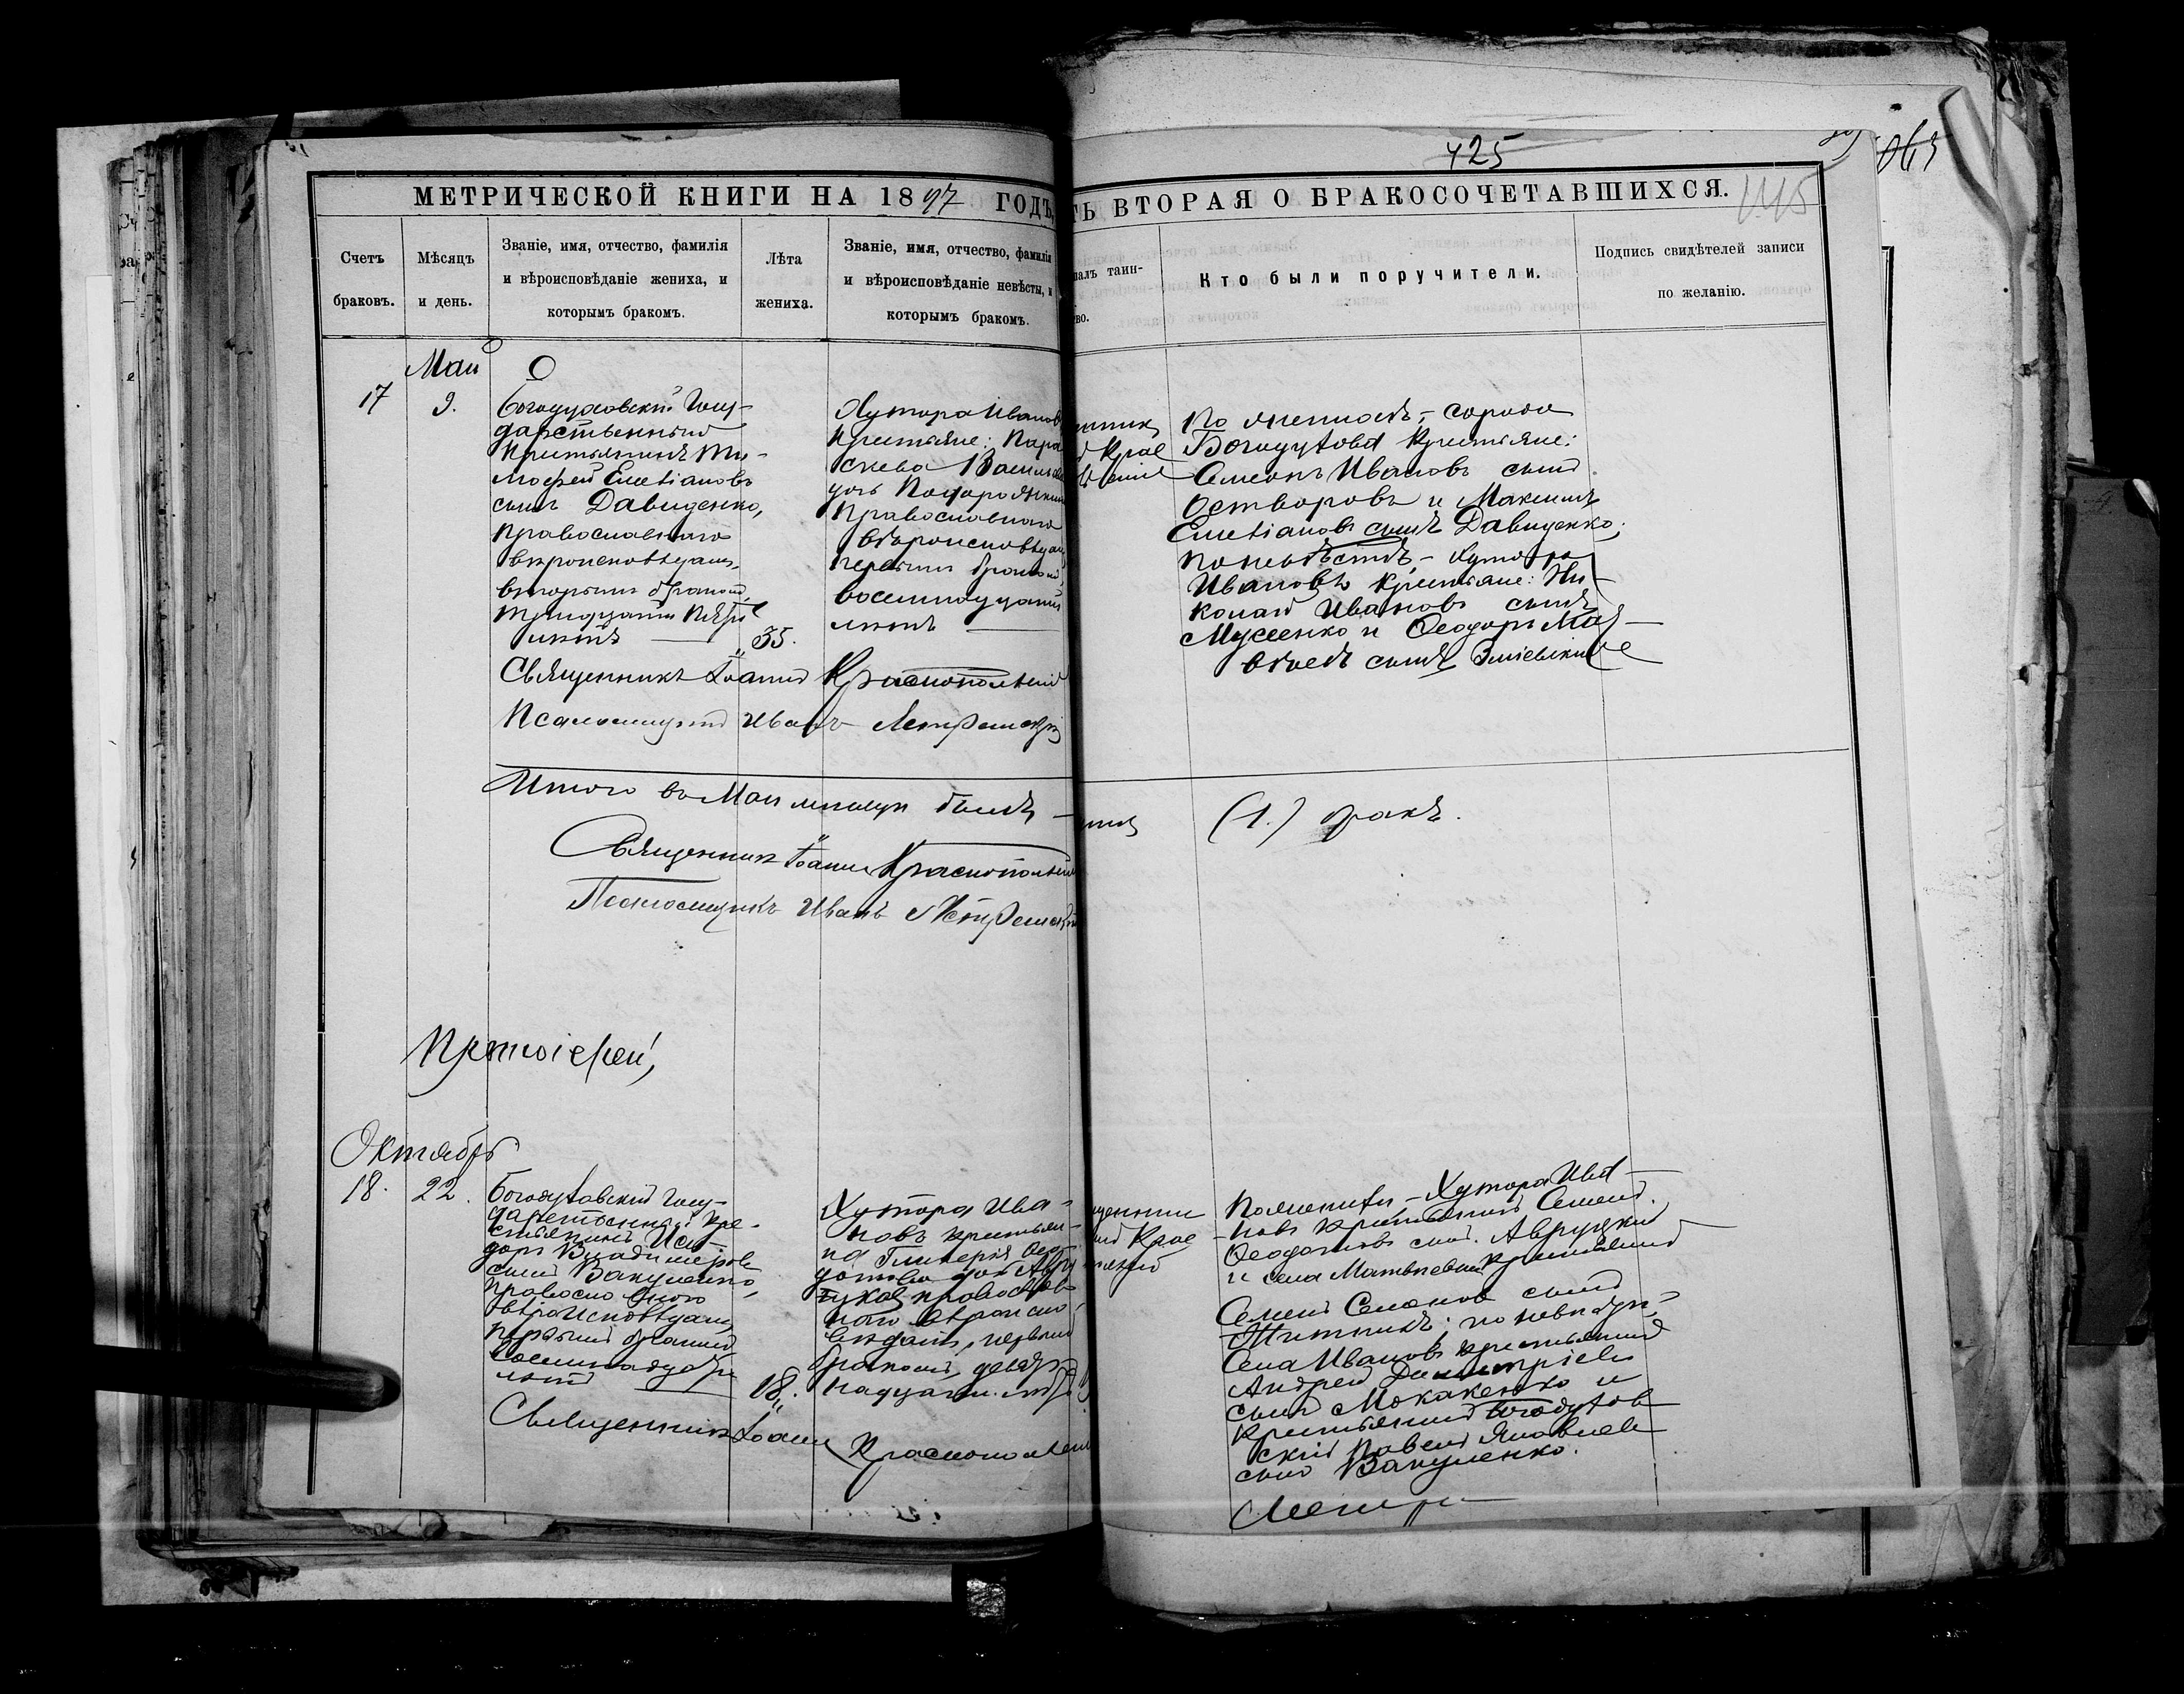 425
МЕТРИЧЕСКОЙ КНИГИ НА 1897 ГОДЪ,
ТЬ ВТОРАЯ О БРАКОСОЧЕТАВШИХСЯ.
145
Счетъ браковъ.
Мѣсяцъ и день.
Званіе, имя, отчество, фамилія
и вѣроисповѣданіе жениха, и
которымъ бракомъ.
Лѣта жениха.
Званіе, имя, отчество, фамилія
и вѣроисповѣданіе невѣсты, и
которымъ бракомъ.
палъ таин-
во.
Кто были поручители.
Подпись свидѣтелей записи
по желанію.
Май
17
9.
Богодуховскій Госу-
дарственный
Крестьянинъ Ти-
мофей Емеліановъ
сынъ Давиденко,
православнаго
вѣроисповѣдан.
вторымъ бракомъ,
тридцати пяти
лѣтъ
35.
Хутора Иванов
крестьяне: Пара
скева Васильева
дочь
Православнаго
вѣроисповѣдан
первымъ бракомъ,
восемнадцати
лѣтъ
Крас
По женихѣ, - города
Богодухова крестьяне:
Симеонъ Ивановъ сынъ
Остворовъ и Максимъ
Емеліановъ сынъ Давиденко;
по невѣстѣ, - Хутора
Ивановъ крестьяне: Ни-
колай Ивановъ сынъ
Мусіенко и Ѳеодоръ Мат-
вѣевъ сынъ Зміевскій
Священникъ Іоаннъ Краснопольскій
Псаломщикъ Иванъ
Итого въ Маѣ мѣсяцѣ былъ -
(1.) бракъ.
Священникъ Іоаннъ Краснопольскій
Псаломщикъ Иванъ
Протоіерей,
Октябрь
18.
22.
Богодуховскій Госу-
дарственный кре-
стьянинъ Иси-
доръ Владиміровъ
сынъ Вакуленко,
православнаго
вѣроисповѣдан,
первымъ бракомъ
восемнадцати
лѣтъ
18.
Хутора Ива-
новъ крестьян-
ка Гликерія Ѳео-
дотова дочь Авру
цкая православ
наго вѣроиспо-
вѣдан, первымъ
бракомъ, девят-
надцати лѣтъ
Крас
По женихѣ - Хутора Ива-
новъ крестьянинъ Семенъ
Ѳеодотовъ сынъ Авруцкій
и села Матвѣевки крестьянинъ
Семенъ Семеновъ сынъ
Житникъ; по невѣстѣ,
Села Ивановъ крестьянинъ
Андрей Димитріевъ
сынъ Мокакенко и
крестьянинъ Богодухов
скій Павелъ Яковлевъ
сынъ Вакуленко.
Священникъ Іоаннъ
Краснопольскій